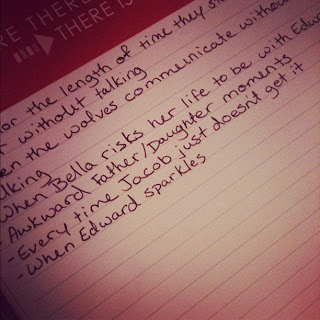 RE THERE
THERE IS
or the length of time they s
r without talking
en the wolves communicate withou
lking
When Bella risks her life to be with Edwa
Awkward Father/Daughter moments
-Every time Jacob just doesn't get it
-When Edward sparkles